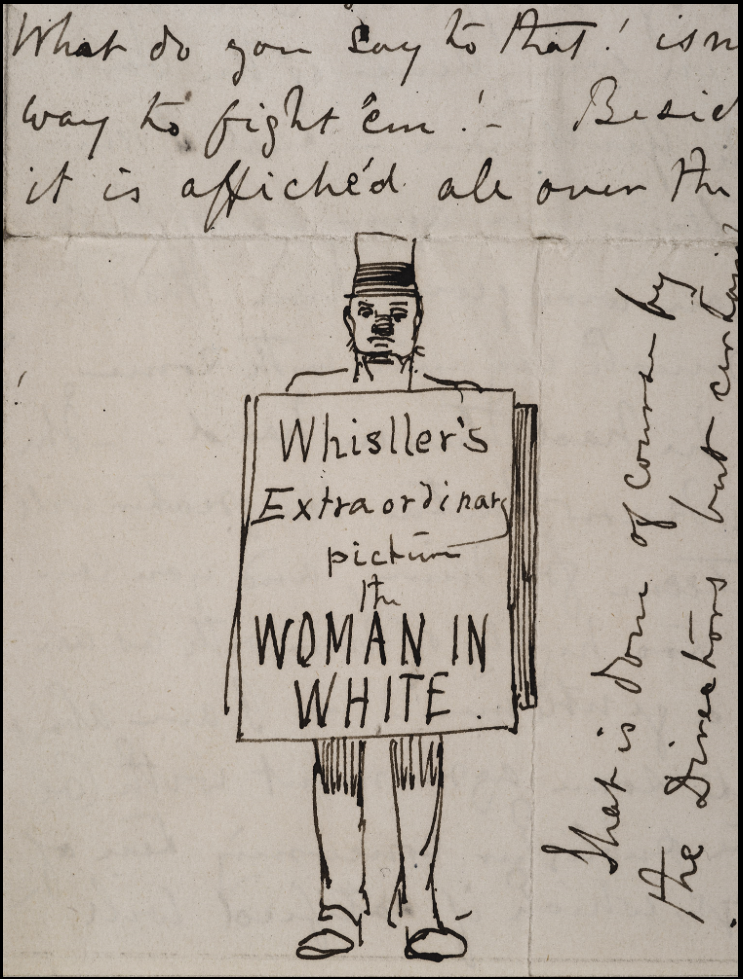 What do you say to that! isn
way to fight 'em!- Besid
it is affiché'd all over the
Whisller's
Extraordinary
picture
the
WOMAN IN
WHITE.
That is done of course by
the Directors but certain